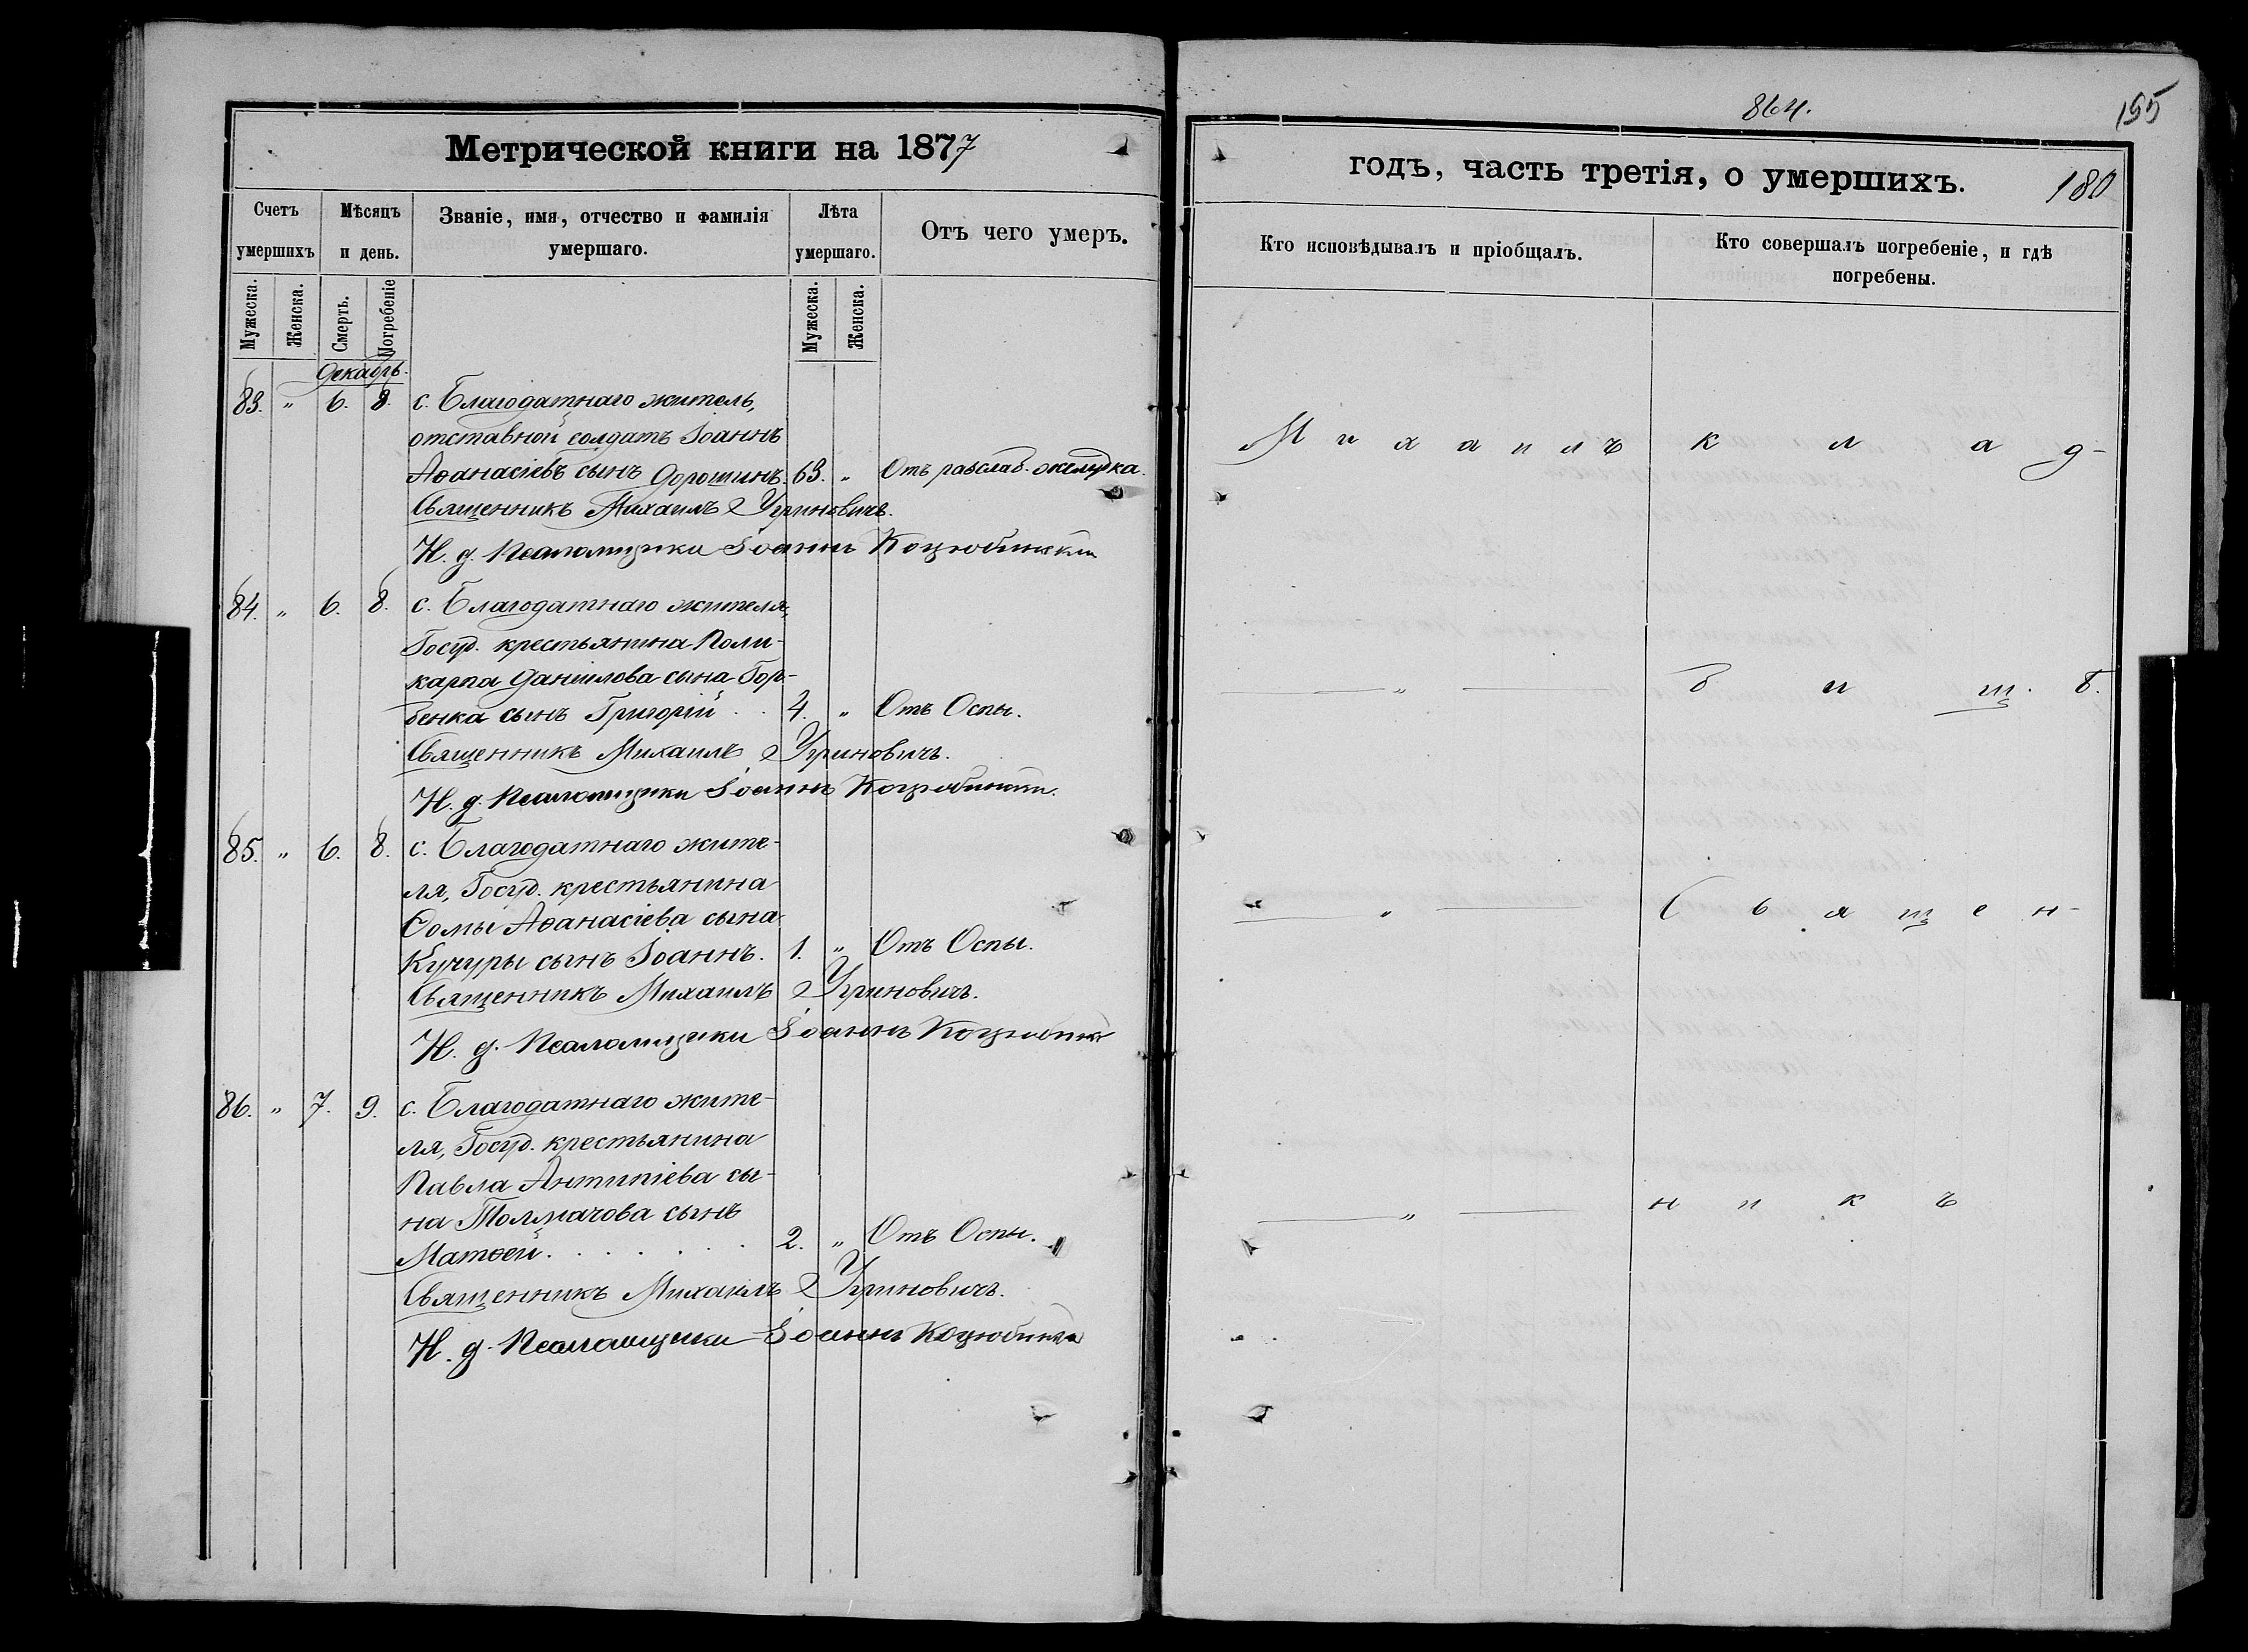 Метрической книги на 1877
Счетъ умершихъ
Мѣсяцъ и день.
Званіе, имя, отчество и фамилія умершаго.
Лѣта умершаго.
Отъ чего умеръ.
Мужеска.
Женска.
Смерть.
Погребеніе
Мужеска.
Женска.
Декабрь.
83. " 6. 8. с. Благодатнаго житель,
отставной солдатъ Іоаннъ
Аѳанасіевъ сынъ Дорошинъ. 63. " Отъ разслаб. желудка.
Священникъ Михаилъ Угриновичъ.
И. д. Псаломщика Іоаннъ Коцюбинскій
84. " 6. 8. с. Благодатнаго жителя,
Госуд. крестьянина Поли-
карпа Даніилова сына Гор-
бенка сынъ Григорій . . 4. " Отъ Оспы.
Священникъ Михаилъ Угриновичъ.
И. д. Псаломщика Іоаннъ Коцюбинскій.
85. " 6. 8. с. Благодатнаго жите-
ля, Госуд. крестьянина
Ѳомы Аѳанасіева сына
Кучуры сынъ Іоаннъ. 1. " Отъ Оспы.
Священникъ Михаилъ Угриновичъ.
И. д. Псаломщика Іоаннъ Коцюбинскій
86. " 7. 9. с. Благодатнаго жите-
ля, Госуд. крестьянина
Павла Антипіева сы-
на Толмачова сынъ
Матѳей. . . . . . . 2. " Отъ Оспы.
Священникъ Михаилъ Угриновичъ.
И. д. Псаломщика Іоаннъ Коцюбинскій
864.
195
годъ, часть третія, о умершихъ.
180
Кто исповѣдывалъ и пріобщалъ.
Кто совершалъ погребеніе, и гдѣ
погребены.
Михаилъ
к л а д-
"
б и щ. б.
"
С в я щ е н-
"
н и к ъ